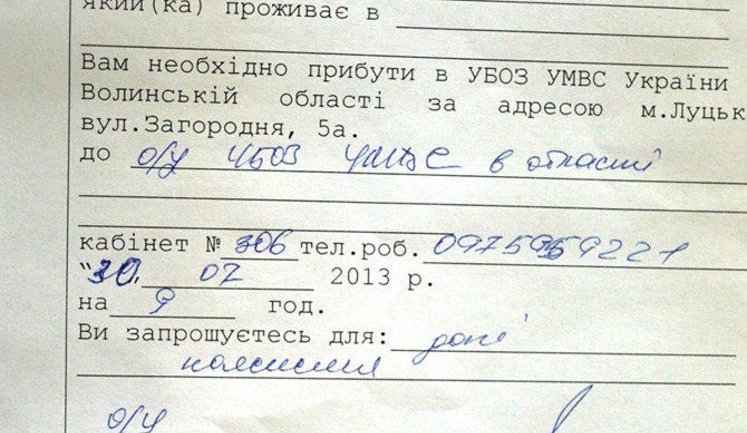 який(ка) проживає в
Вам необхідно прибути в УБОЗ УМВС України
Волинській області за адресою м.Луцьк
вул.Загородня, 5а.
до о/у УБОЗ УМВС в області
кабінет № 306 тел.роб.
"30" 07 2013 р.
на 9 год.
Ви запрошуєтесь для: дачі
пояснення
о/у